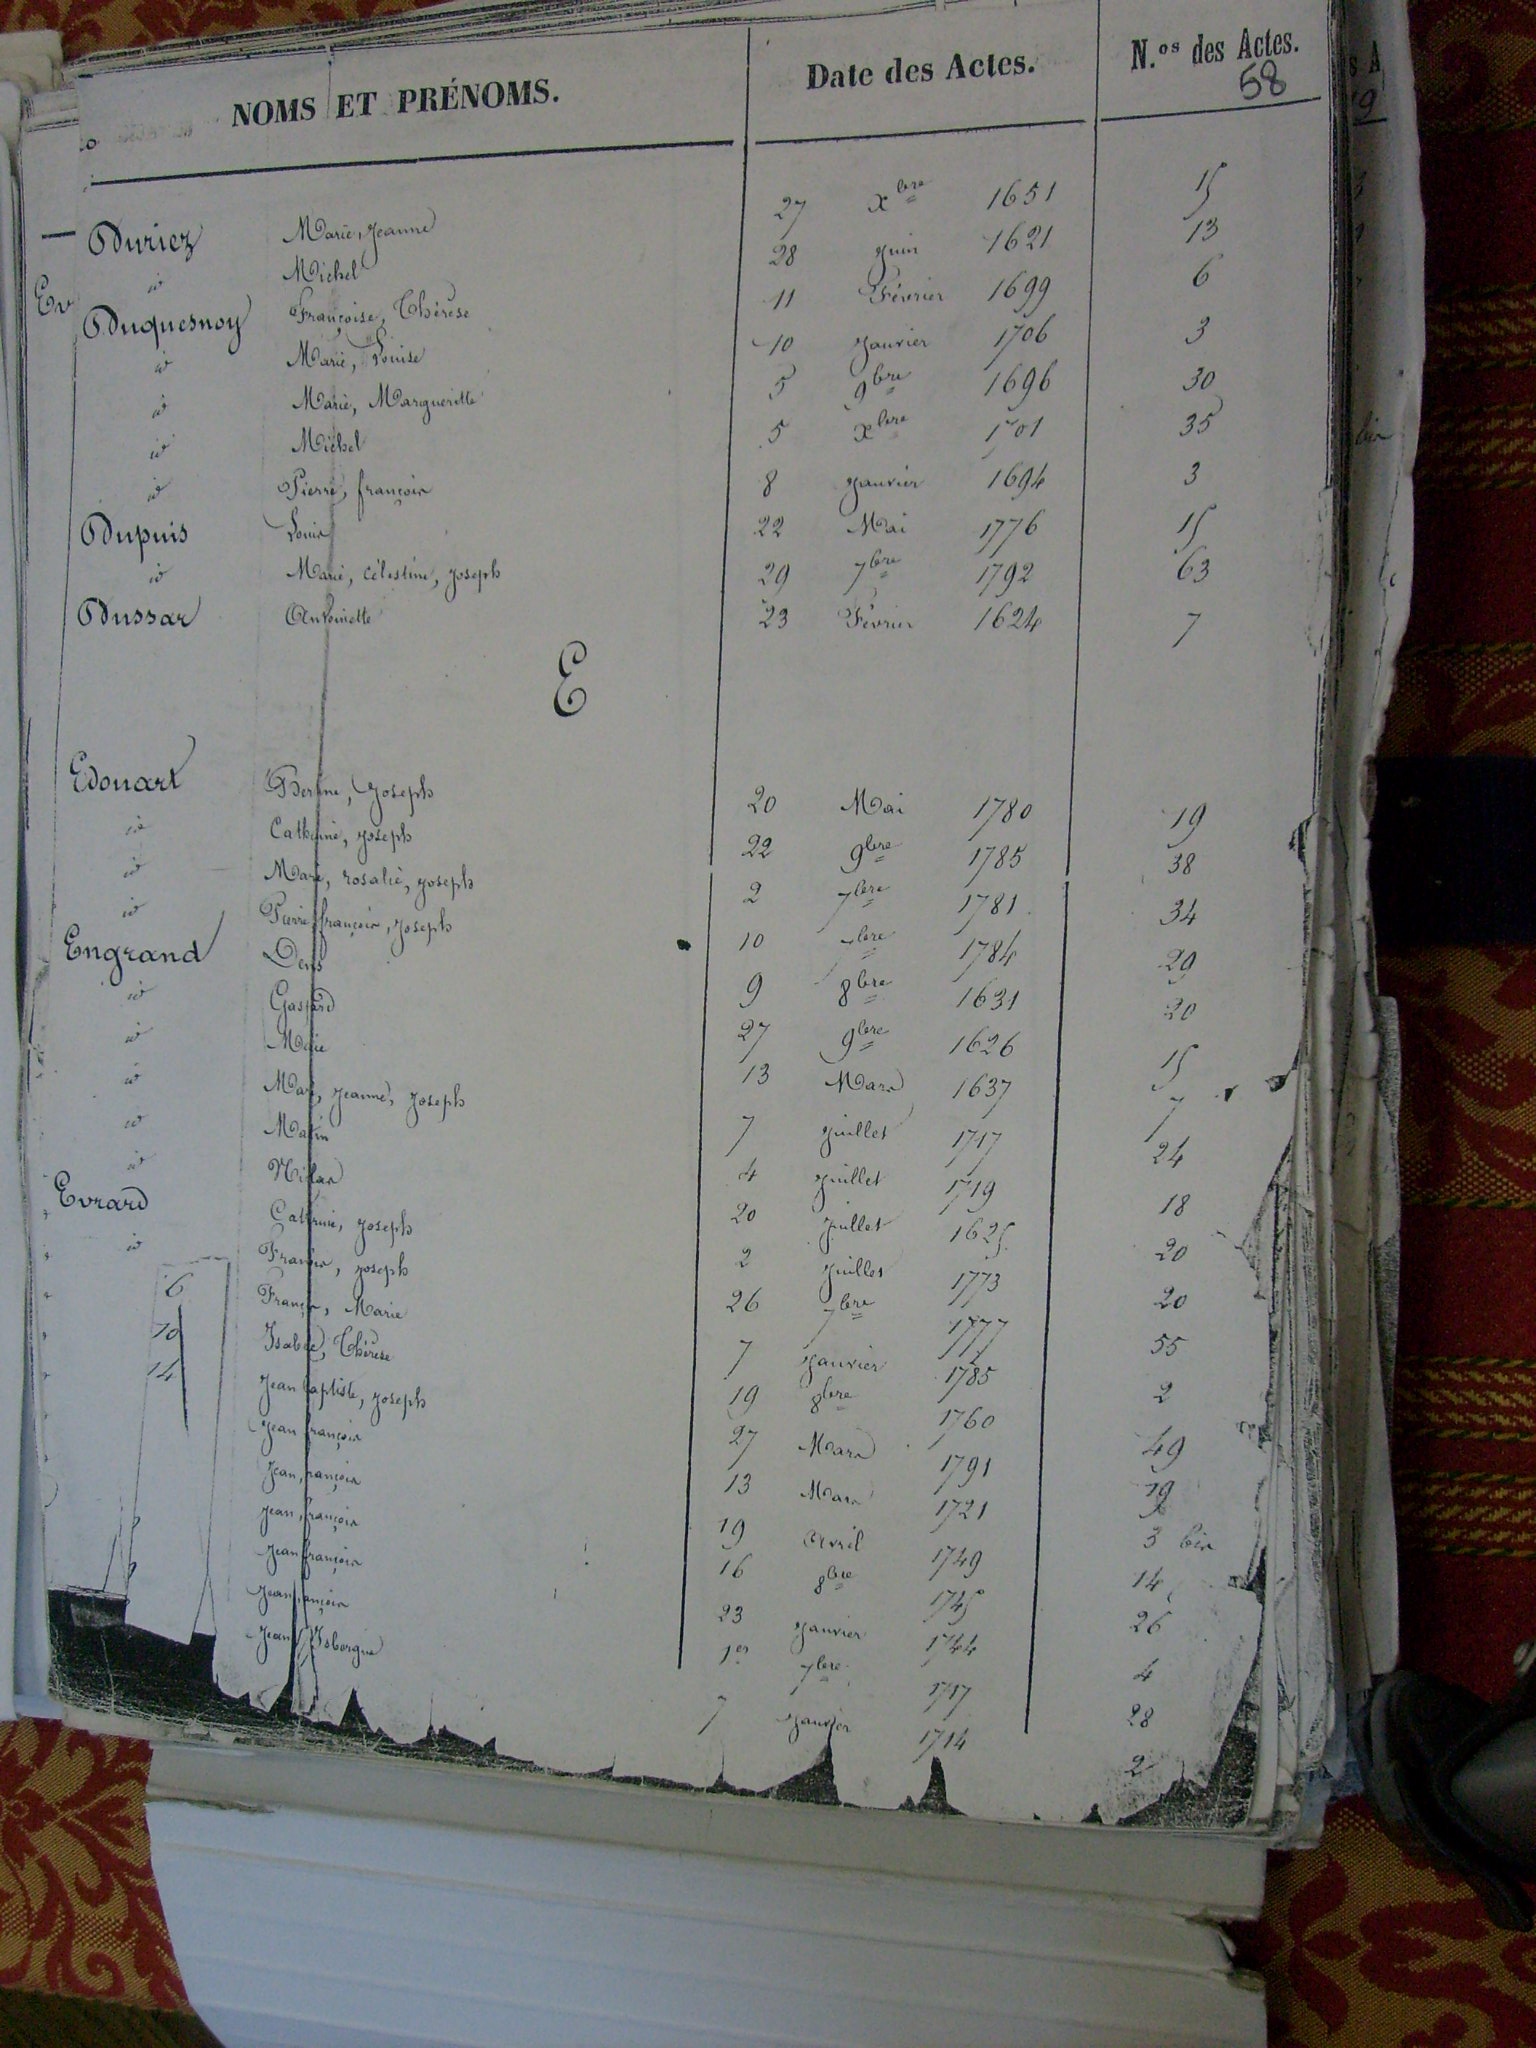 NOMS ET PRÉNOMS. Date des Actes. N.os des Actes.
58
Duriez Marie, Jeanne 27 Xbre 1651 15
id Michel 28 Juin 1621 13
Duquesnoy Françoise, Thérèse 11 Février 1699 6
id Marie, Louise 10 Janvier 1706 3
id Marie, Margueritte 5 9bre 1696 30
id Michel 5 Xbre 1701 35
id Pierre, françois 8 Janvier 1694 3
Dupuis Louis 22 Mai 1776 15
id Marie, Célestine, Joseph 29 7bre 1792 63
Dussar Antoinette 23 Février 1624 7
E
Edouart Bertine, Joseph 20 Mai 1780 19
id Catherine, Joseph 22 9bre 1785 38
id Marie, rosalie, Joseph 2 7bre 1781 34
id Pierre françois, Joseph 10 7bre 1784 29
Engrand Denis 9 8bre 1631 20
id Gaspard 27 9bre 1626 15
id Marie 13 Mars 1637 7
id Marie, Jeanne, Joseph 7 Juillet 1717 24
id Martin 4 Juillet 1719 18
id Nicolas 20 Juillet 1625 20
Evrard Catherine, Joseph 2 Juillet 1773 20
id François, Joseph 26 7bre 1777 55
6 François, Marie 7 Janvier 1785 2
10 Isabelle, Thérèse 19 8bre 1760 49
14 Jean baptiste, Joseph 27 Mars 1791 19
Jean françois 13 Mars 1721 3 bis
Jean, françois 19 Avril 1749 14
Jean, françois 16 8bre 1745 26
Jean françois 23 Janvier 1744 4
Jean, françois 1er 7bre 1717 28
Jean, Isbergue 7 Janvier 1714 2